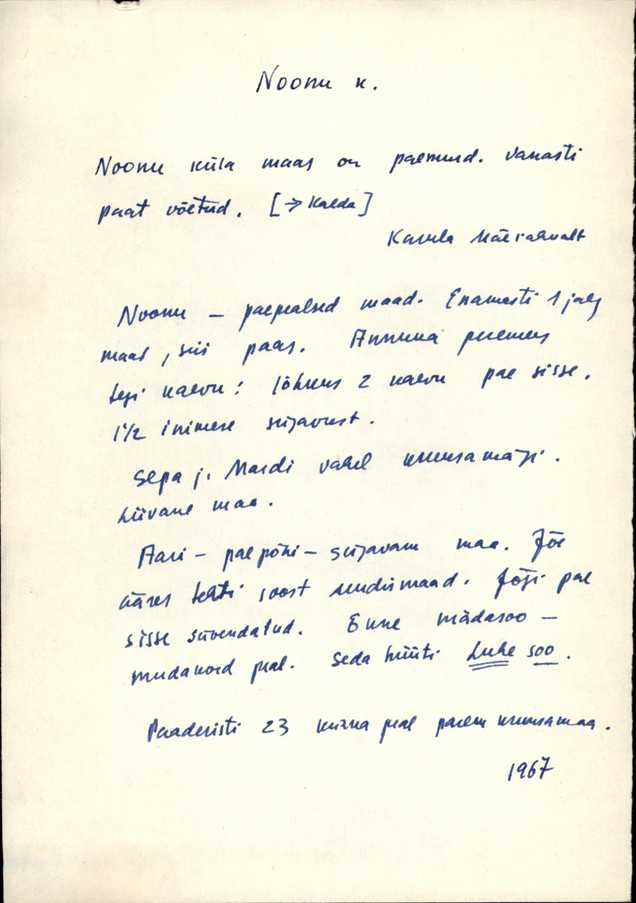 Noonu k.
Noonu küla maas on paemurd. Vanasti
paat võetud. [→ Kalda]
Noonu — paepealsed maad. Enamasti 1 jalg
maad, siis paas. Annuka peremees
tegi kaevu: lõhkus 2 kaevu pae sisse.
1 1/2 inimese sügavust.
Sepa j. Mardi vahel kruusamägi.
Liivane maa.
Aari — pae põhi — sügavam maa. Jõe
ääres tehti soost uudismaad. Jõgi pae
sisse süvendatud. Enne mädasoo —
mudakord peal. Seda hüüti Luhe soo.
Paaderisti 23 peal parem kruusamaa.
1967